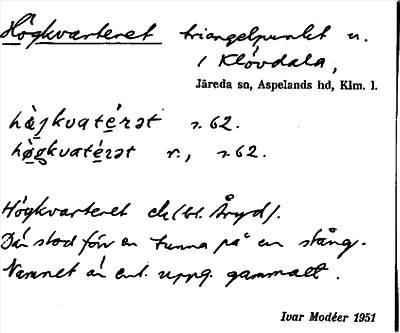 Högkvarteret triangelpunkt n.
i Klövdala,
Järeda sn, Aspelands hd, Klm. l.
hø̀gkvatérət r., s. 62.
Högkvarteret ek (bl. Åryd).
Där stod förr en tunna på en stång.
Namnet är enl. uppg. gammalt.
Ivar Modéer 1951